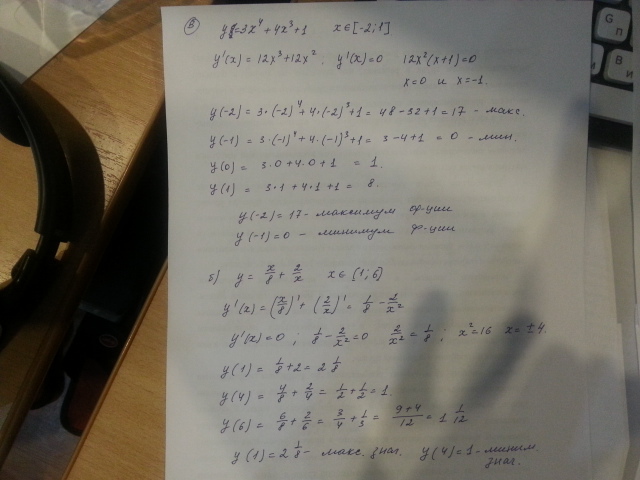 В) y=3x⁴+4x³+1 x∈[-2;1]
y'(x)=12x³+12x²; y'(x)=0 12x²(x+1)=0
x=0 и x=-1.
y(-2)=3·(-2)⁴+4·(-2)³+1=48-32+1=17 - макс.
y(-1)=3·(-1)⁴+4·(-1)³+1=3-4+1=0 - мин.
y(0)=3·0+4·0+1=1.
y(1)=3·1+4·1+1=8.
y(-2)=17- максимум ф-ции
y(-1)=0 - минимум ф-ции
б) y=x/8+2/x x∈[1;6]
y'(x)=(x/8)'+(2/x)'=1/8-2/x²
y'(x)=0; 1/8-2/x²=0 2/x²=1/8; x²=16 x=±4.
y(1)=1/8+2=2 1/8
y(4)=4/8+2/4=1/2+1/2=1.
y(6)=6/8+2/6=3/4+1/3=(9+4)/12=1 1/12
y(1)=2 1/8- макс. знач. y(4)=1-миним.
знач.